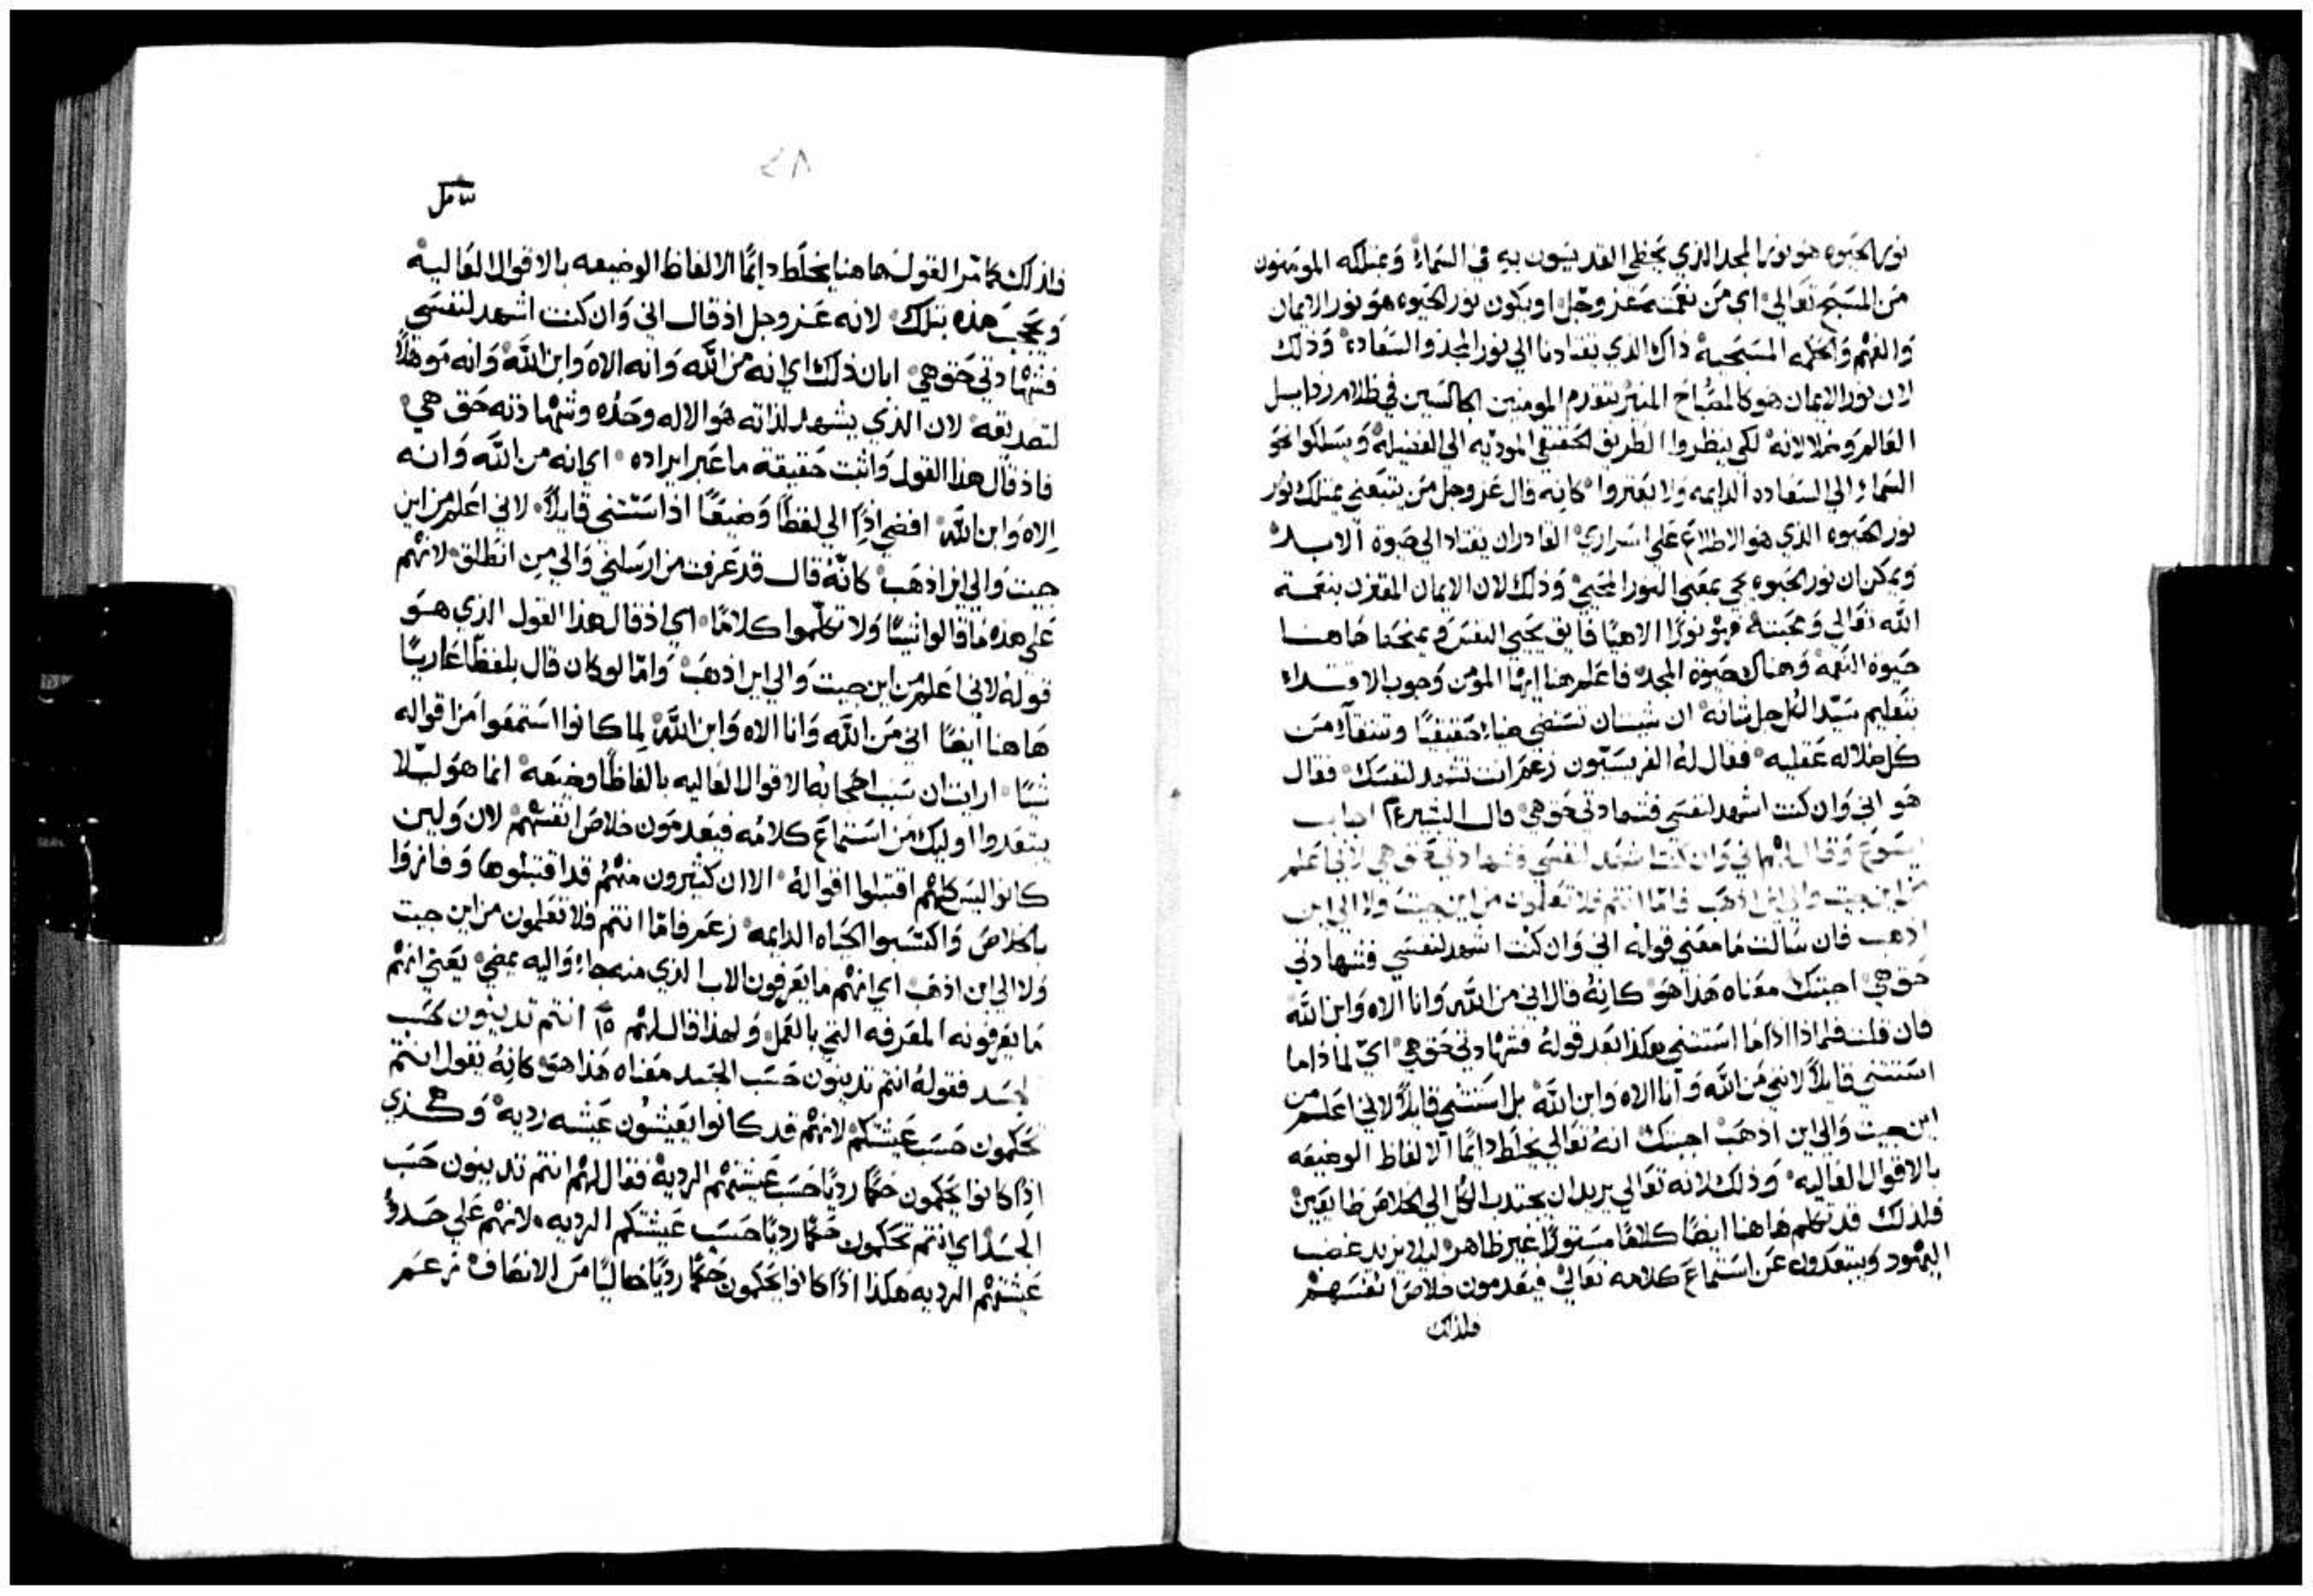 نور الحيوه هو نور المجد الذي يحظي القديسون به في السماء وَيمتلكه المومنون
من المسَيح تعَالي اي من نعمته عَز وجَل او يكون نور الحيوه هوَ نور الايمان
وَالفهم وَالحكمه المسَيحيه ذاك الذي يقتادنا الي نور المجد والسَعاده وَذلك
لان نور الايمان هو كالمصباح المنير يتقدم المومنين الجالسَين في ظلام رذايل
العَالم وضلالاته لكي ينظروا الطريق الحَقيقي الموديه الي الفضيلة وَيسَلكوا نحوَ
السَماء والي السَعاده الدايمه وَلا يعَثروا كانه قال عَز وجل من يتبَعني يمتلك نور
نور الحيوه الذي هو الاطلاع عَلي اسَراري القادر ان يقتاد الي حيوة الابد
وَيمكن ان نور الحيوه يجي بمعَني النور المحيي وَذلك لان الايمان المقترن بنعمة
الله تعَالي وَمحَبته هو نورًا الاهيًا فايق يحَيي النفسَ وَيمنحَنا هَاهنا
حيوة النعمه وَهناك حيوة المجد فاعَلم هنا ايها المومن وَجوب الاقتداء
بتعَليم سَيّد الكل جل شانه ان شيت ان تسَتضي ضياءً حَقيقيًا وتنقا من
كل ضلاله عَقليه فقال لهُ الفريسَيّون زعَم انت تشهد لنفسَك فقال
هَو اني وَان كنت اشهد لنفسَي فشهادتي حَق هي قال البشير ١٤ اجاب
يسَوع وَقال لهم اني وَان كنت اشهَد لنفسَي فشهادتي حَق هي لاني اعَلم
من اين جيت والي اين اذهَب فامّا انتم فلا تعَلمون من اين جيت وَلا الي اين
اذهب فان سَالت مَا معَني قوله اني وَان كنت اشهد لنفسَي فشهادتي
حَق هي اجبتك معَناه هَذا هوَ كانهُ قال اني من الله وَانا الاه وَابن الله
فان قلت فلماذا اذًا ما اسَتثني هكذا بَعد قولهُ فشهادتي حَق هي ايّ لماذا ما
اسَتثني قايلاً لانني من الله وَانا الاه وَابن الله بل اسَتثني قايلاً لاني اعَلم من
اين جيت وَالي اين اذهَب اجبتك انهُ تعَالي يخلَط دايمًا الالفاظ الوضيعَه
بالاقوال العَاليه وَذلك لانه تعَالي يريد ان يجتذب الكل الي الخلاص طايعَين
فلذلك قد تكلم هَاهنا ايضًا كلامًا مسَتورًا غير ظاهر ليلا يزيد غضب
اليهود وَيبتعَدون عَن اسَتماعَ كلامه تعَالي فيعَدمون خلاصَ انفسَهم
فلذلك
٤٨
فلذلك كما مّر القول هاهنا يخلَط دايمًا الالفاظ الوضيعه بالاقوال العَاليه
وَيحجبَ هذه بتلك لانه عَز وجل اذ قال اني وَان كنت اشهد لنفسَي
فشهَادتي حَق هي ابان ذلك اي انه من الله وَانه الاه وَابن الله وَانه مَوهلاً
لتصديقه لان الذي يشهد لذاته هَو الاله وحَده وشهاداته حَق هي
فاذ قال هذا القول وَاثبت حَقيقة ما عَبر ايراده اي انه من الله وَانه
الاه وَابن الله افضي اذًا الي لفظًا وَضيعًا اذ اسَتثني قايلاً لاني اعَلم من اين
جيت وَالي اين اذهَب كانّهُ قال قد عَرفت من ارسَلني وَالي من انطلق لانهم
عَلي هذه مَا قالوا شيًا وَلا تكلّموا كلامًا اي اذ قال هذا القول الذي هَو
قولهُ لاني اعَلم من اين جيت وَالي اين اذهَب وَامّا لو كان قال بلفظًا عَاريًا
هَاهنا ايضًا اني مَن الله وَانا الاه وَابن الله لما كانوا اسَتمعَوا من اقواله
شيًا ارايت ان سَبب احجابه الاقوال العَاليه بالفاظًا وضيعَه انما هوَ ليلا
يبتعَدوا اوليك مَن اسَتماعَ كلامُه فيعَدمون خلاصَ انفسَهم لان وَلين
كانوا ليسَ كلهم اقتبلوا اقواله الا ان كثيرون منهُم قد اقتبلوها وَفازوا
بالخلاصَ وَاكتسَبوا الحَياه الدايمه زعَم فامّا انتم فلا تعَلمون من اين جيت
وَلا الي اين اذهَب اي انهم ما يعَرفون الاب الذي منه جاء وَاليه يمضي يعَني انهم
مَا يعَرفونه المعَرفه التي بالعَمل وَلهذا قال لهم ١٥ انتم تدينون حَسَب
الجسَد فقولهُ انتم تدينون حَسَب الجسَد معَناه هَذا هوَ كانهُ يقول انتم
تحَكمون حَسَب عَيشتكم لانهم قد كانوا يعَيشون عَيشه رديه وَهكذي
اذًا كانوا يحَكمون حكمًا رديًا حَسَب عَيشتهم الرديه فقال لهم انتم تدينون حَسَب
الجسَد اي انتم تحَكمون حَكمًا رديًا حَسَب عَيشتكم الرديه لانهم عَلي حَدو
عَيشتهم الرديه هكذا اذًا كانوا يحَكمون حَكمًا رديًا خاليًا من الانصَاف زعَم